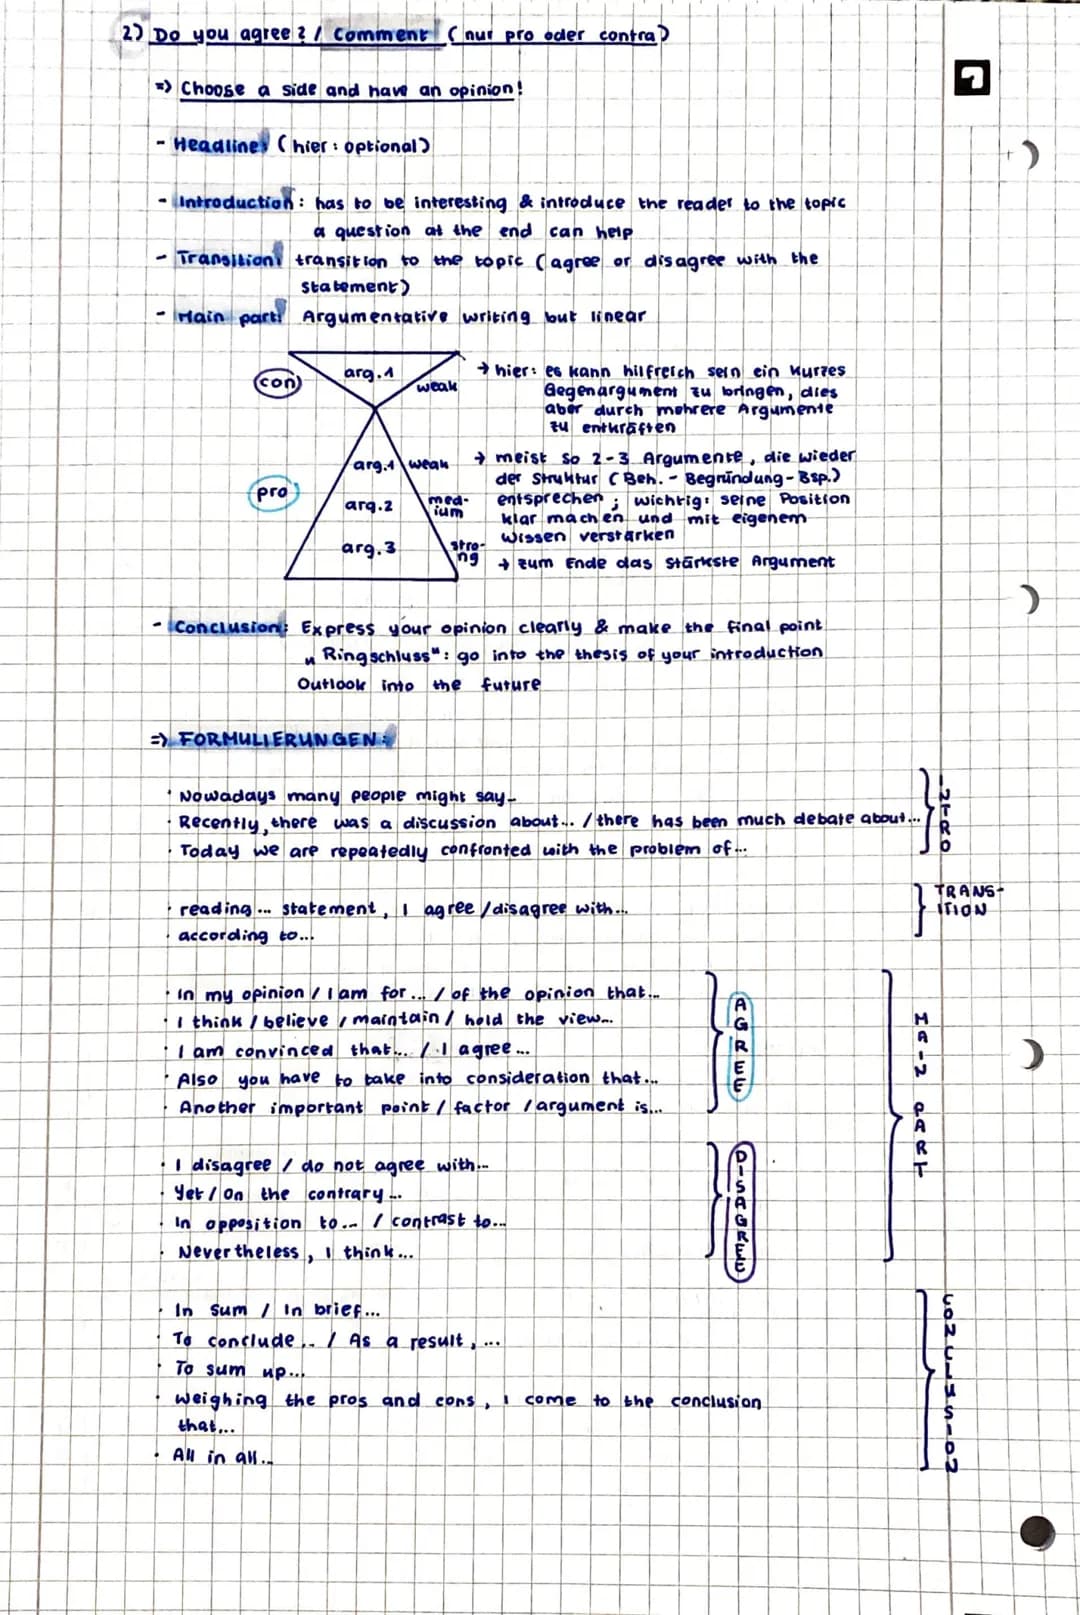 2) Do you agree? / Comment (nur pro oder contra)
=> Choose a side and have an opinion!
- Headline: (hier: optional)
- Introduction: has to be interesting & introduce the reader to the topic
a question at the end can help
- Transition: transition to the topic (agree or disagree with the
statement)
- Main part: Argumentative writing but linear
con
arg. 1
weak
→ hier: es kann hilfreich sein ein kurzes
Gegenargument zu bringen, dies
aber durch mehrere Argumente
zu entkräften
pro
arg. 1 weak
arg. 2 med-
ium
arg. 3 stro-
ng
→ meist so 2-3 Argumente, die wieder
der Struktur (Beh. - Begründung - Bsp.)
entsprechen; wichtig: seine Position
klar machen und mit eigenem
Wissen verstärken
→ zum Ende das stärkste Argument
- Conclusion: Express your opinion clearly & make the final point
„Ringschluss": go into the thesis of your introduction
Outlook into the future
=> FORMULIERUNGEN:
· Nowadays many people might say...
· Recently, there was a discussion about... / there has been much debate about...
· Today we are repeatedly confronted with the problem of...
INTRO
· reading... statement, I agree / disagree with...
· according to...
TRANS-
ITION
· In my opinion / I am for... / of the opinion that...
· I think / believe / maintain / hold the view...
· I am convinced that... / I agree...
· Also you have to take into consideration that...
· Another important point / factor / argument is...
AGREE
· I disagree / do not agree with...
· Yet / On the contrary...
· In opposition to... / contrast to...
· Nevertheless, I think...
DISAGREE
MAIN PART
· In sum / In brief...
· To conclude.. / As a result, ...
· To sum up...
· Weighing the pros and cons, I come to the conclusion
that...
· All in all...
CONCLUSION